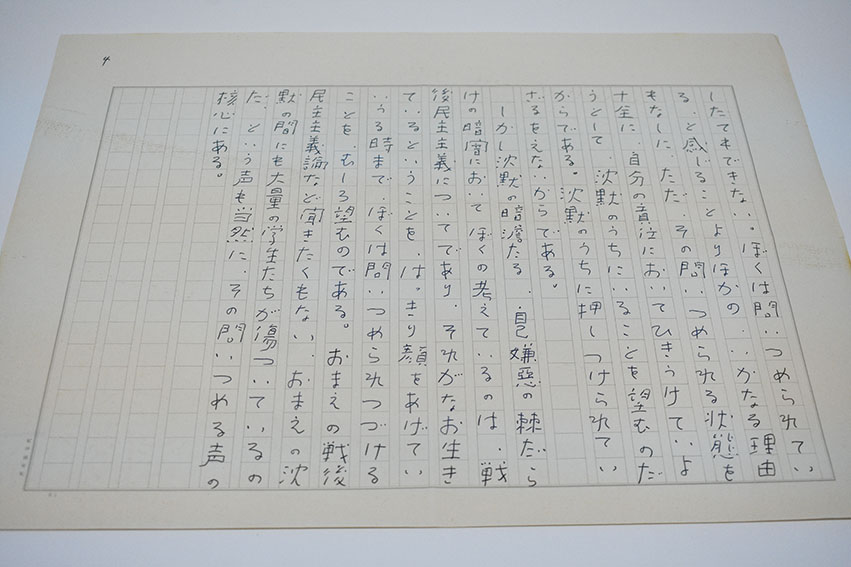 4
したてもできない。ぼくは問いつめられてい
る、と感じることよりほかの、いかなる理由
もなしに、ただ、その問いつめられる状態を
十全に、自分の責任においてひきうけていよ
うとして、沈黙のうちにいることを望むのだ
からである。沈黙のうちに押しつけられてい
ざるをえないからである。
しかし沈黙の暗澹たる、自己嫌悪の棘だら
けの暗闇においてぼくの考えているのは、戦
後民主主義についてであり、それがなお生き
ているということを、はっきり顔をあげてい
いうる時まで、ぼくは問いつめられつづける
ことを、むしろ望むのである。おまえの戦後
民主主義論など聞きたくもない、おまえの沈
黙の間にも大量の学生たちが傷ついているの
だ、という声も当然に、その問いつめる声の
核心にある。